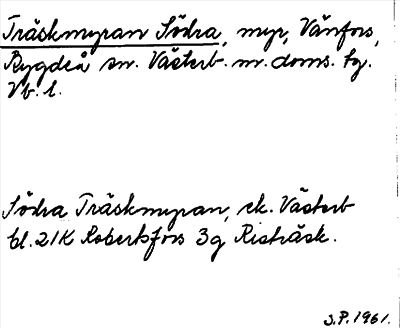 Träskmyran Södra, myr, Vånfors,
Bygdeå sn. Västerb. n. doms. tg.
Vb. l.
Södra Träskmyran, ek. Västerb
bl. 21K Robertsfors 3g Risträsk.
S.P. 1961.